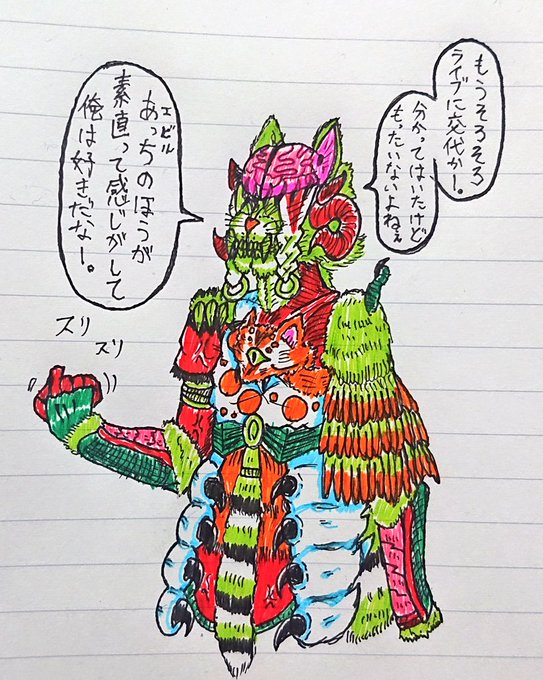 もうそろそろ
ライブに交代かー。
分かってはいたけど
もったいないよねぇ
エビル
あっちのほうが
素直って感じがして
俺は好きだなー。
スリ
スリ